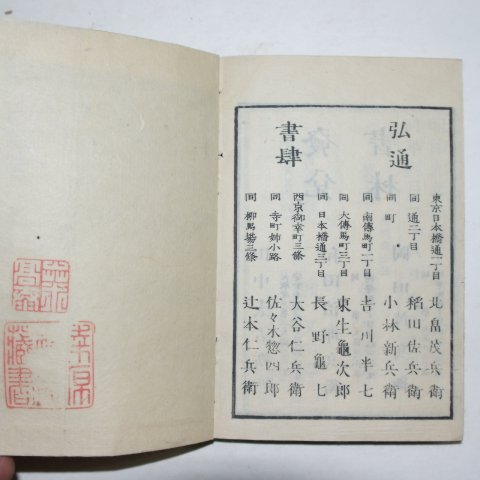 弘通
書肆
東京日本橋通一丁目 北畠茂兵衛
同 通二丁目 稲田佐兵衛
同 町 小林新兵衛
同 南傳馬町一丁目 吉川半七
同 大傳馬町三丁目 東生龜次郎
同 日本橋通三丁目 長野龜七
西京御幸町三條 大谷仁兵衛
同 寺町姉小路 佐々木惣四郎
同 柳馬場三條 辻本仁兵衛
藏書